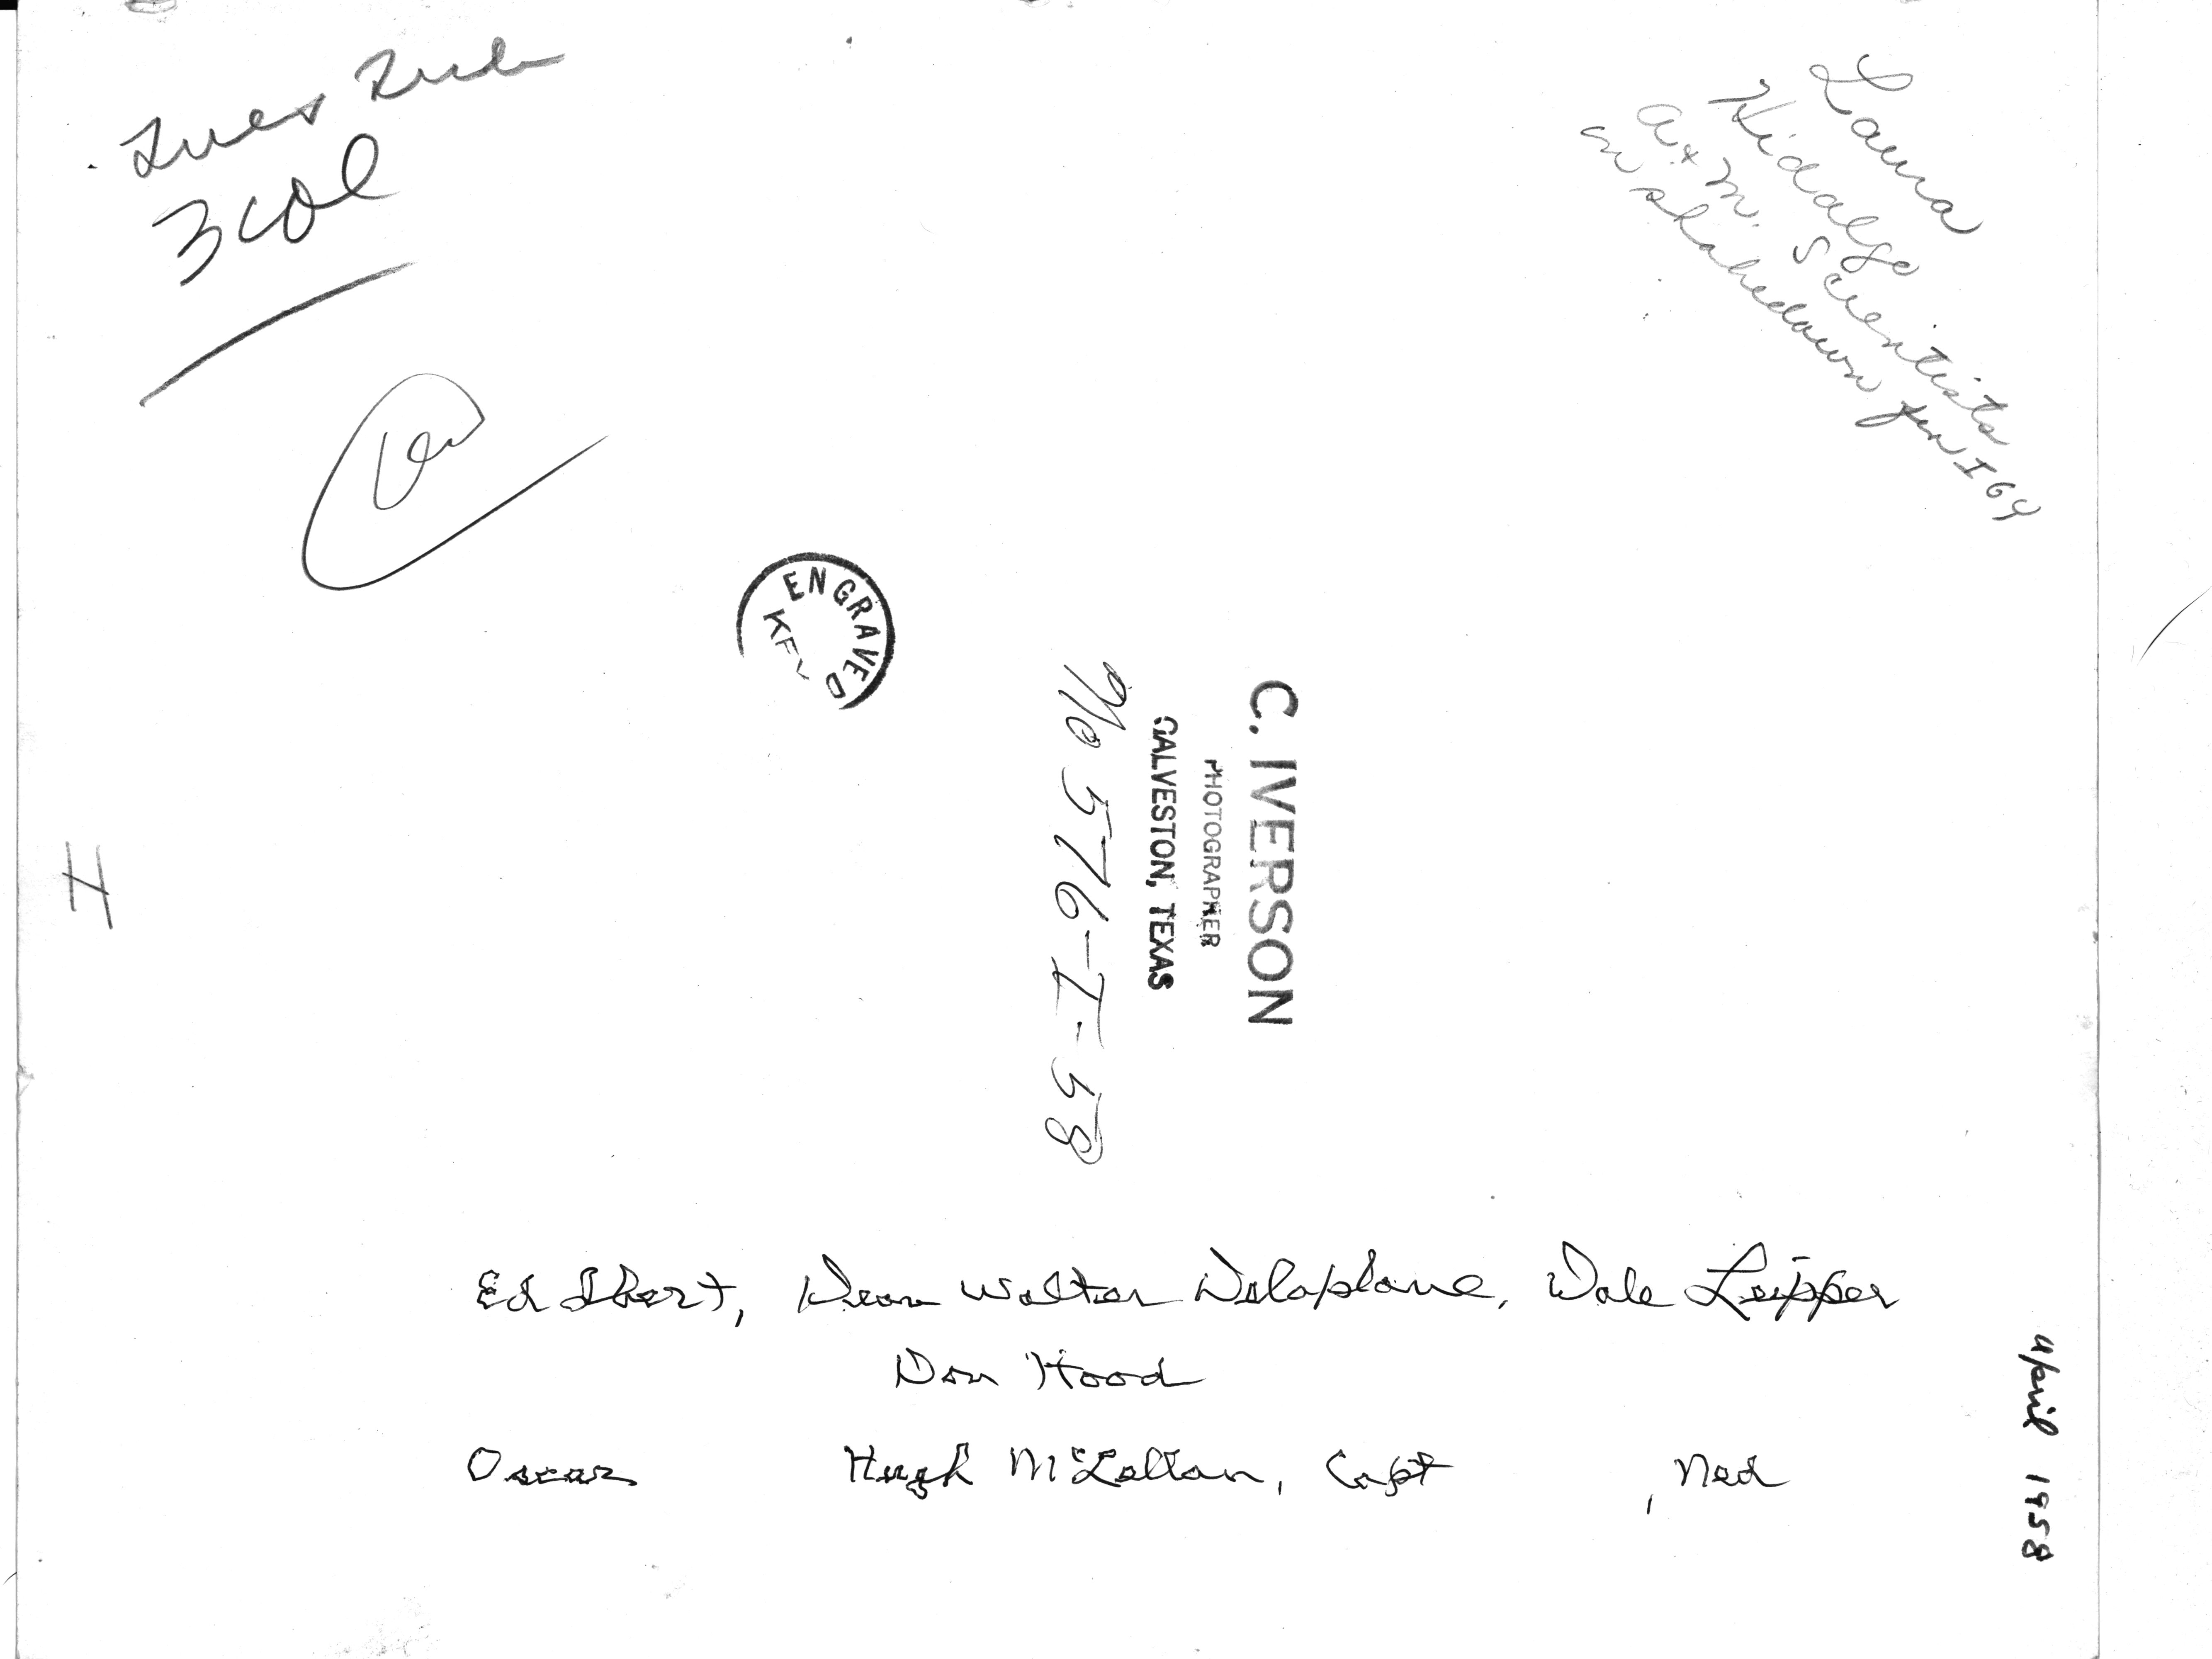 Tues
3 col
Laura
Hidalgo
A+M Scientists
on shakedown for IGY
ENGRAVED
C. IVERSON
PHOTOGRAPHER
GALVESTON, TEXAS
No 576-I-58
H
Ed Short, Dean Walter Delaplane, Dale Leipper
Don Hood
Oscar Hugh McLellan, Capt , Ned
April 1958